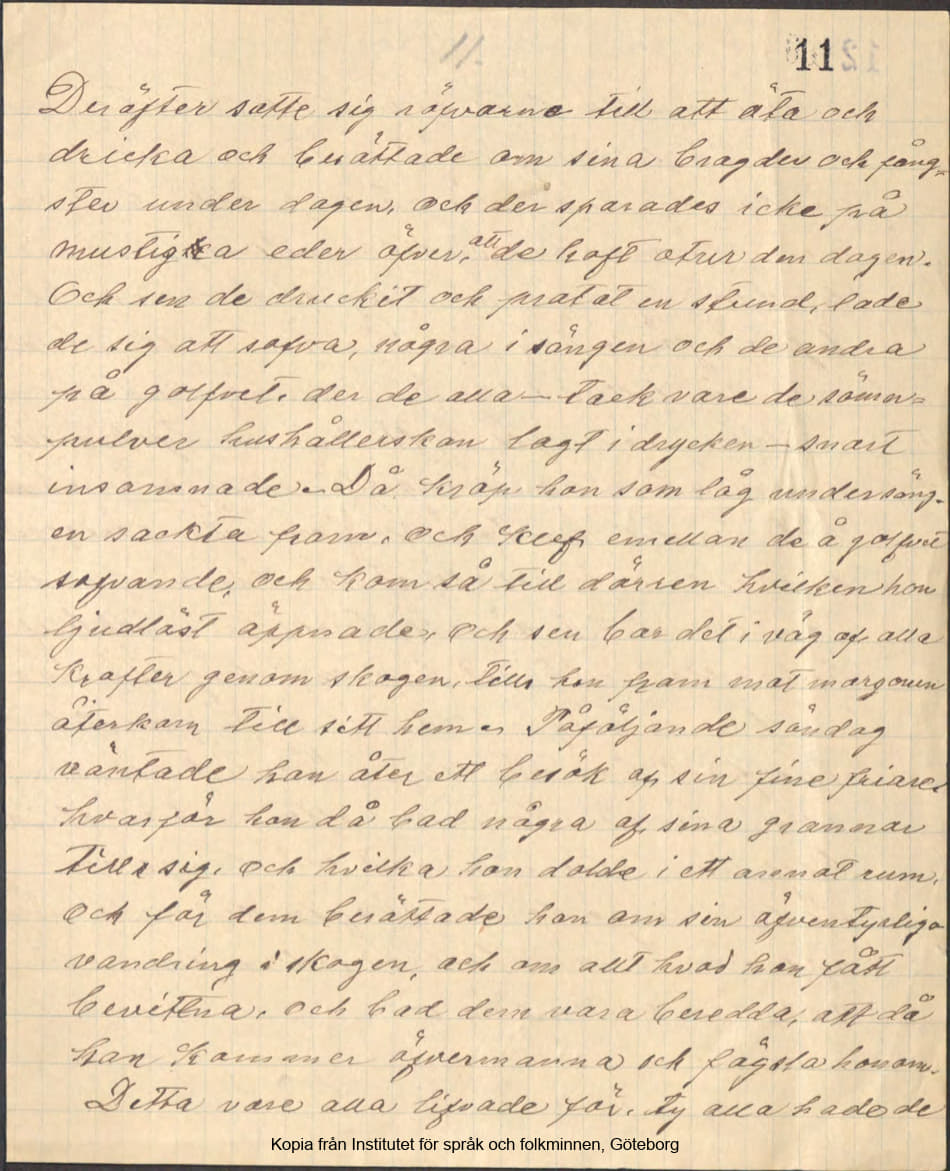 11.
11
Deräfter satte sig röfvarne till att äta och
dricka och berättade om sina bragder och fång-
ster under dagen, och der sparades icke på
mustiga eder öfver, att de haft otur den dagen.
Och sen de druckit och pratat en stund, lade
de sig att sofva, några i sängen och de andra
på golfvet, der de alla – tack vare de sömn=
pulver hushållerskan lagt i drycken – snart
insomnade. Då kröp hon som låg under säng-
en sackta fram, och klef emellan de å golfvet
sofvande, och kom så till dörren hvilken hon
ljudlöst öppnade, och sen bar det i väg af alla
krafter genom skogen, tills hon fram mot morgonen
återkom till sitt hem. Påföljande söndag
väntade hon åter ett besök af sin fine friare,
hvarför hon då bad några af sina grannar
till sig, och hvilka hon dolde i ett annat rum,
och för dem berättade hon om sin äfventyrliga
vandring i skogen, och om allt hvad hon fått
bevittna, och bad dem vara beredda, att då
han kommer öfvermanna och fägsla honom.
Detta vore alla lifvade för, ty alla hade de
Kopia från Institutet för språk och folkminnen, Göteborg